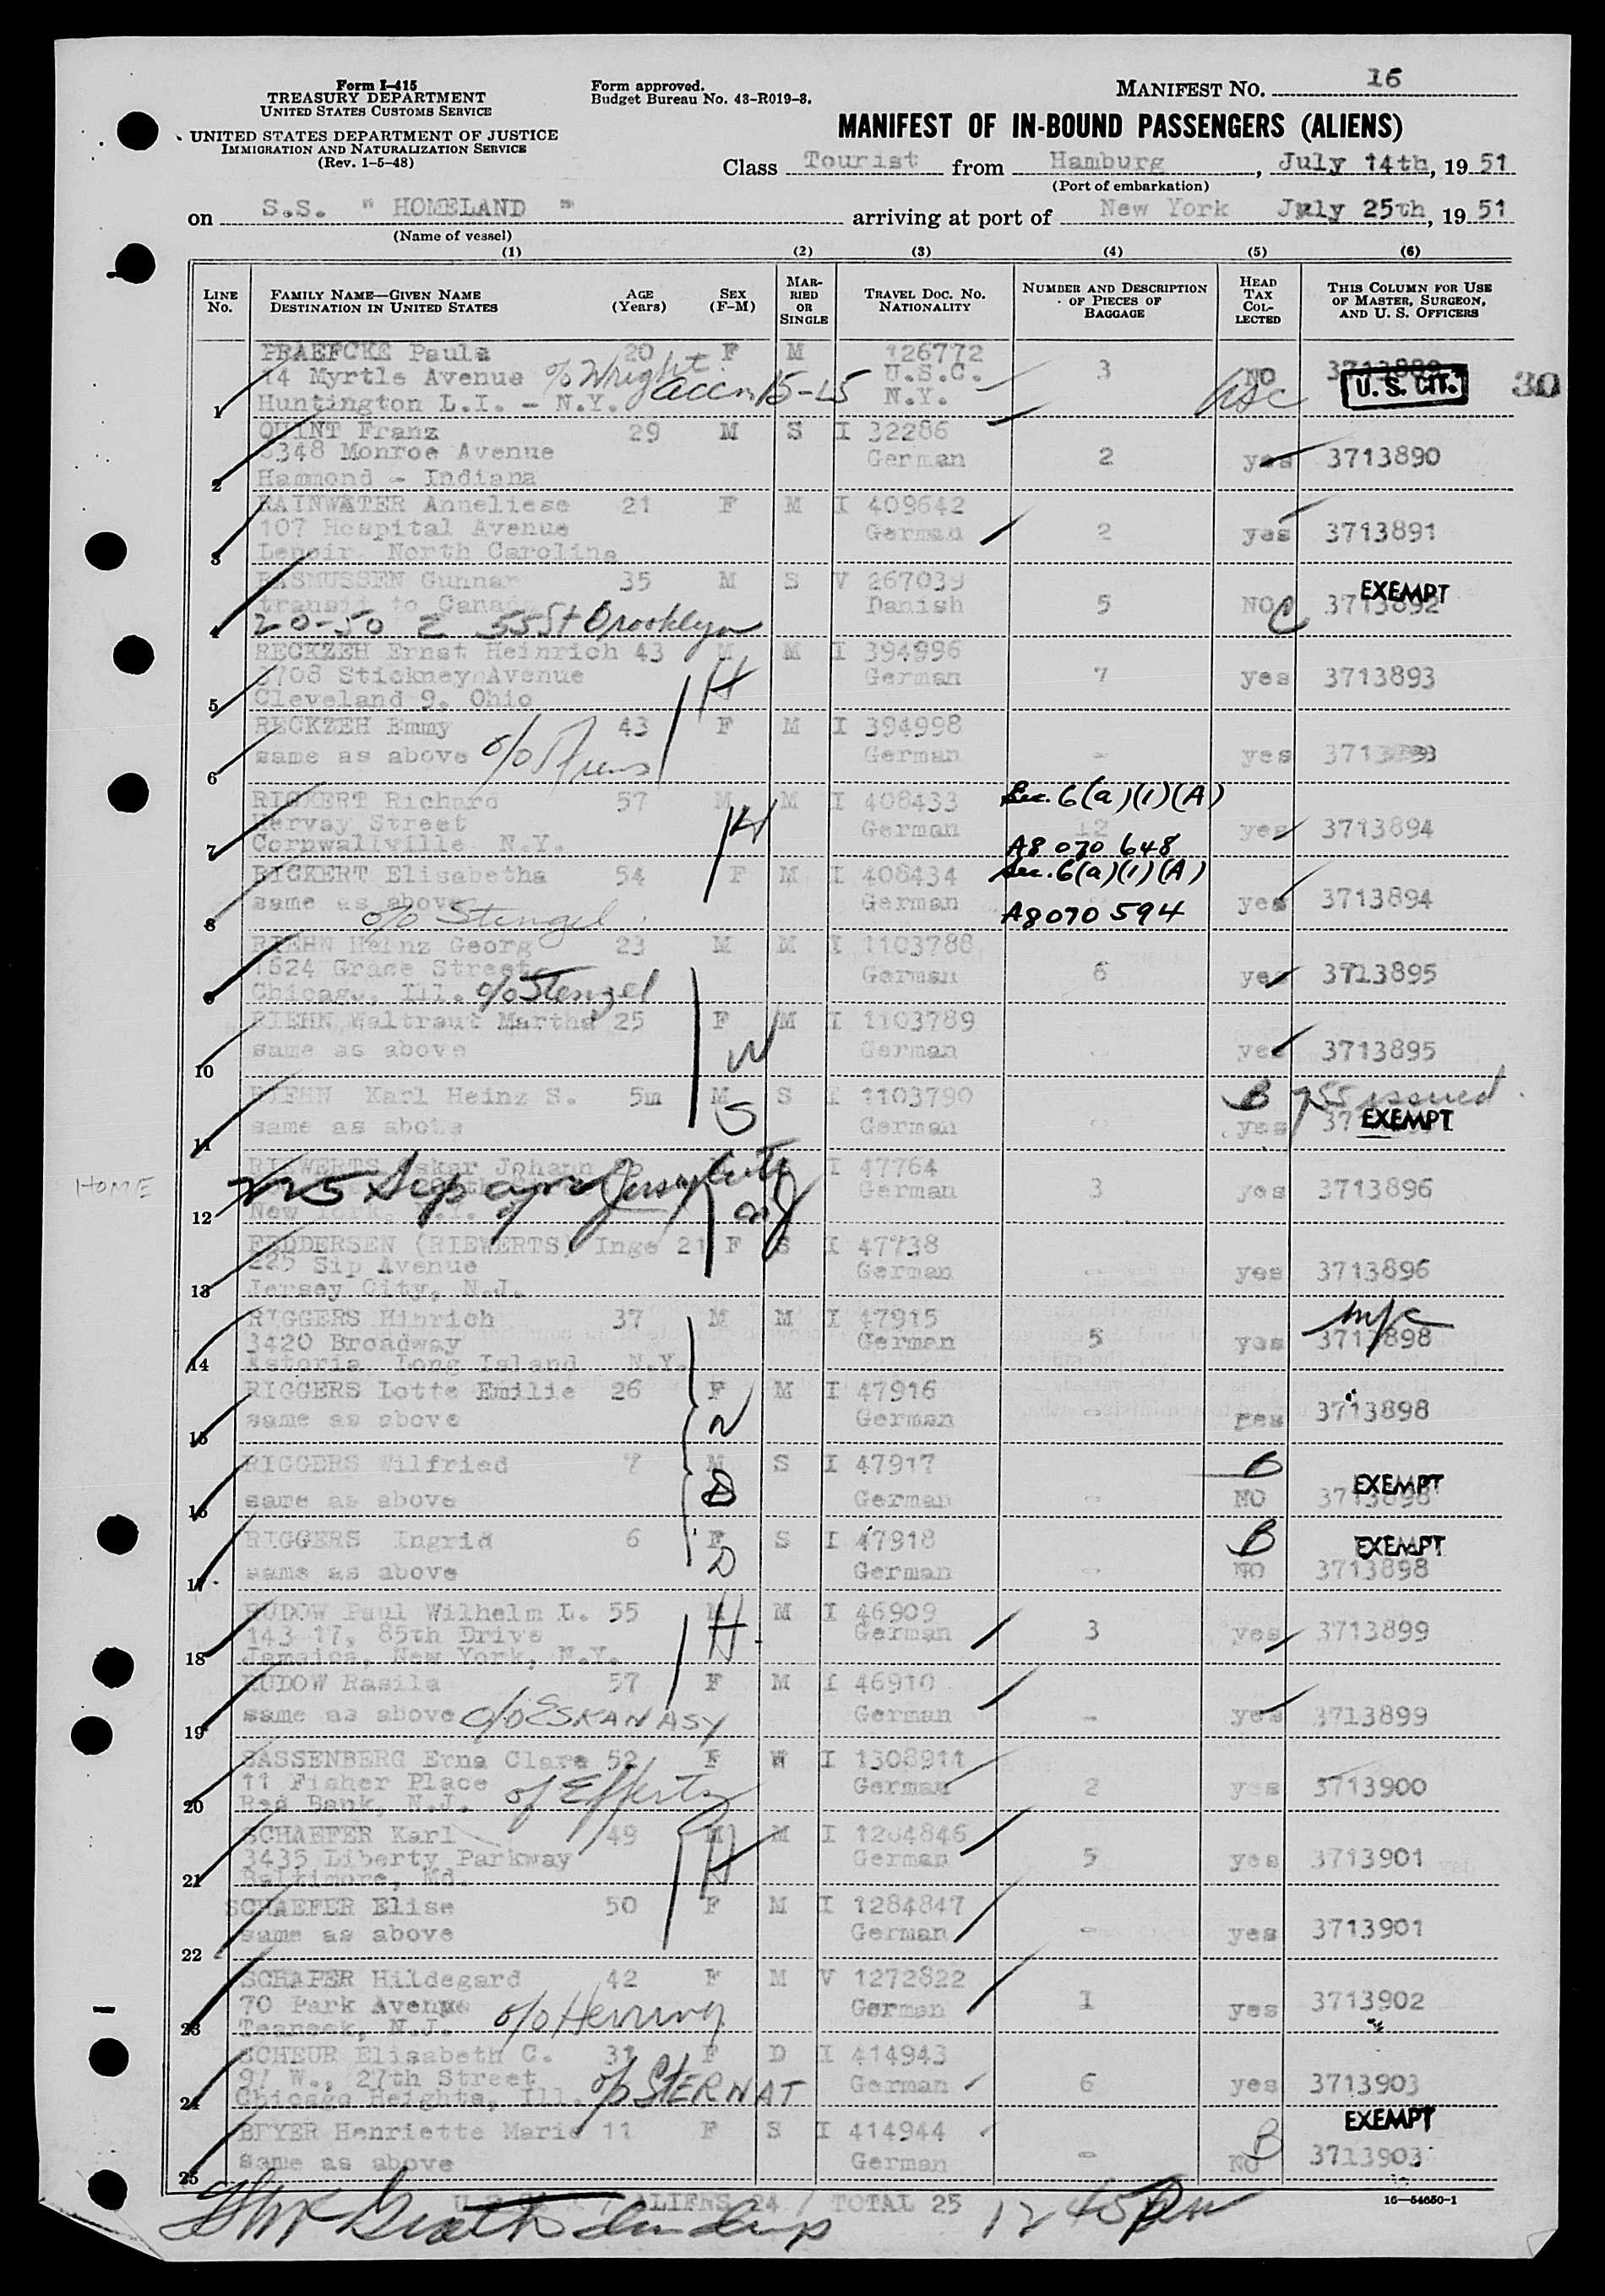 Form I-415
TREASURY DEPARTMENT
UNITED STATES CUSTOMS SERVICE
UNITED STATES DEPARTMENT OF JUSTICE
IMMIGRATION AND NATURALIZATION SERVICE
(Rev. 1-5-48)
Form approved.
Budget Bureau No. 43-R019-3.
MANIFEST NO. 16
MANIFEST OF IN-BOUND PASSENGERS (ALIENS)
Class Tourist from Hamburg, July 14th, 1951
(Port of embarkation)
on S.S. " HOMELAND " arriving at port of New York July 25th, 1951
(Name of vessel)
(1) (2) (3) (4) (5) (6)
LINE No. FAMILY NAME—GIVEN NAME DESTINATION IN UNITED STATES AGE (Years) SEX (F-M) MARRIED OR SINGLE TRAVEL DOC. NO. NATIONALITY NUMBER AND DESCRIPTION OF PIECES OF BAGGAGE HEAD TAX COLLECTED THIS COLUMN FOR USE OF MASTER, SURGEON, AND U. S. OFFICERS
PRAEFCKE Paula 20 F M 126772
14 Myrtle Avenue c/o Wright U.S.C. 3 NO U. S. CIT. 30
1 Huntington L.I. - N.Y. N.Y. usc
QUINT Franz 29 M S I 32286
5348 Monroe Avenue German 2 yes 3713890
2 Hammond - Indiana
RAINWATER Anneliese 21 F M I 409642
107 Hospital Avenue German 2 yes 3713891
3 Lenoir, North Carolina
RASMUSSEN Gunnar 35 M S V 267039 EXEMPT
transit to Canada Danish 5 NO C 3713892
4 20-50 E 55 St Brooklyn
RECKZEH Ernst Heinrich 43 M M I 394996
3708 Stickney Avenue German 7 yes 3713893
5 Cleveland 9, Ohio H
RECKZEH Emmy 43 F M I 394998
6 same as above c/o German - yes 3713893
RICKERT Richard 57 M M I 408433 Sec. 6(a)(1)(A)
Hervay Street H German 12 yes 3713894
7 Cornwallville N.Y. A8 070 648
RICKERT Elisabetha 54 F M I 408434 Sec. 6(a)(1)(A)
same as above German yes 3713894
8 c/o Stengel A8 070 594
RIEHN Heinz Georg 23 M M I 1103788
1624 Grace Street German 6 yes 3713895
9 Chicago, Ill. c/o Stenzel
RIEHN Waltraut Martha 25 F M I 1103789
10 same as above W German - yes 3713895
RIEHN Karl Heinz S. 5m M S I 1103790 B 755 issued
11 same as above S German - yes EXEMPT
HOME
RIEWERTS Oskar Johann I 47764
225 Sip ave Jersey City German 3 yes 3713896
12 New York, N.Y. NJ
FEDDERSEN (RIEWERTS) Inge 21 F S I 47738
225 Sip Avenue German - yes 3713896
13 Jersey City, N.J.
RIGGERS Hinrich 37 M M I 47915 m/c
3420 Broadway German 5 yes 3713898
14 Astoria, Long Island N.Y.
RIGGERS Lotte Emilie 26 F M I 47916
15 same as above W German - yes 3713898
RIGGERS Wilfried 7 M S I 47917 B EXEMPT
16 same as above S German - NO 3713898
RIGGERS Ingrid 6 F S I 47918 B EXEMPT
17 same as above D German - NO 3713898
RUDOW Paul Wilhelm L. 55 M M I 46909
143-17, 85th Drive H German 3 yes 3713899
18 Jamaica, New York, N.Y.
RUDOW Rasila 57 F M I 46910
19 same as above c/o ESKANASY German - yes 3713899
SASSENBERG Erna Clara 52 F W I 1308911
11 Fisher Place c/o Effertz German 2 yes 3713900
20 Red Bank, N.J.
SCHAEFER Karl 49 M M I 1284846
3435 Liberty Parkway H German 5 yes 3713901
21 Baltimore, Md.
SCHAEFER Elise 50 F M I 1284847
22 same as above German - yes 3713901
SCHAPER Hildegard 42 F M V 1272822
70 Park Avenue German 1 yes 3713902
23 Teaneck, N.J. c/o Henning
SCHEUR Elisabeth C. 31 F D I 414943
97 W., 27th Street German 6 yes 3713903
24 Chicago Heights, Ill. c/o STERNAT
BEYER Henriette Marie 11 F S I 414944 B EXEMPT
25 same as above German - NO 3713903
ALIENS 24 / TOTAL 25 12 45 Pm
16-54650-1